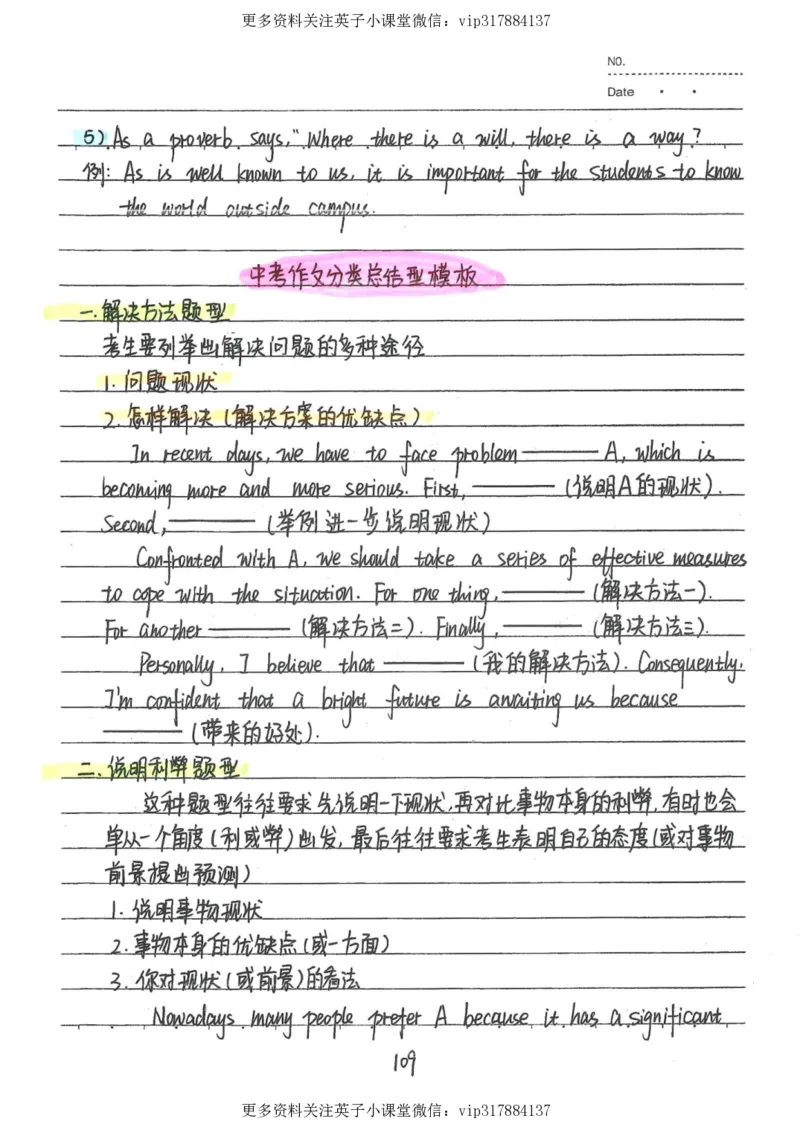 更多资料关注英子小课堂微信：vip317884137
NO.
Date
5) As a proverb says, "Where there is a will, there is a way?
例: As is well known to us, it is important for the students to know
the world outside campus.
中考作文分类总结型模板
一.解决方法题型
考生要列举出解决问题的多种途径
1. 问题现状
2. 怎样解决(解决方案的优缺点)
In recent days, we have to face problem —— A, which is
becoming more and more serious. First, —— (说明A的现状).
Second, —— (举例进一步说明现状)
Confronted with A, we should take a series of effective measures
to cope with the situation. For one thing, —— (解决方法一).
For another —— (解决方法二). Finally, —— (解决方法三).
Personally, I believe that —— (我的解决方法). Consequently,
I'm confident that a bright future is awaiting us because
—— (带来的好处).
二.说明利弊题型
这种题型往往要求先说明一下现状,再对比事物本身的利弊,有时也会
单从一个角度(利或弊)出发,最后往往要求考生表明自己的态度(或对事物
前景提出预测)
1. 说明事物现状
2. 事物本身的优缺点(或一方面)
3. 你对现状(或前景)的看法
Nowadays many people prefer A because it has a significant
109
更多资料关注英子小课堂微信：vip317884137